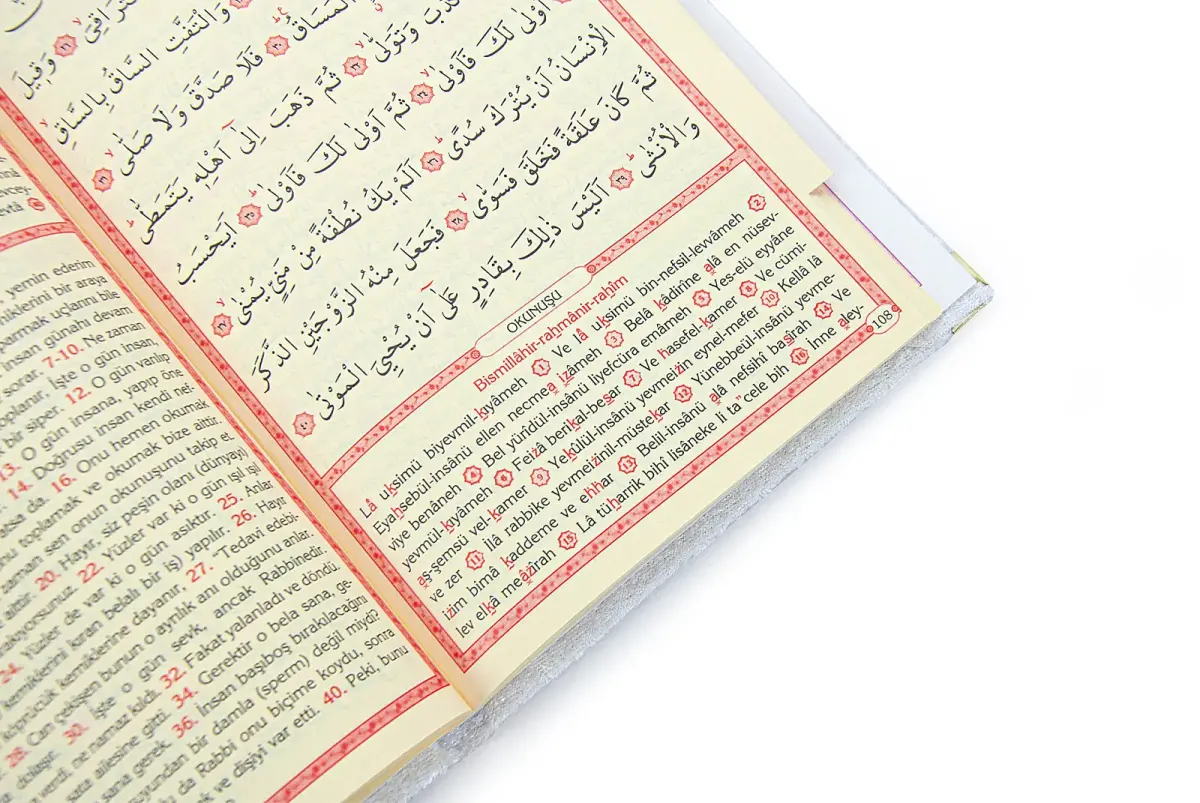 وَقِيلَ
وَالْتَفَّتِ السَّاقُ بِالسَّاقِ
الْمَسَاقُ ٣٠ فَلَا صَدَّقَ وَلَا صَلّٰى ٣١
وَتَوَلّٰى ٣٢ ثُمَّ ذَهَبَ اِلٰٓى اَهْلِه۪ يَتَمَطّٰى
اَوْلٰى لَكَ فَاَوْلٰى ٣٤ ثُمَّ اَوْلٰى لَكَ فَاَوْلٰى ٣٥ اَيَحْسَبُ
الْاِنْسَانُ اَنْ يُتْرَكَ سُدًى ٣٦ اَلَمْ يَكُ نُطْفَةً مِنْ مَنِيٍّ يُمْنٰى ٣٧
ثُمَّ كَانَ عَلَقَةً فَخَلَقَ فَسَوّٰى ٣٨ فَجَعَلَ مِنْهُ الزَّوْجَيْنِ الذَّكَرَ
وَالْاُنْثٰى ٣٩ اَلَيْسَ ذٰلِكَ بِقَادِرٍ عَلٰٓى اَنْ يُحْيِيَ الْمَوْتٰى ٤٠
OKUNUŞU
Bismillâhir-rahmânir-rahîm
Lâ uksimü biyevmil-kıyâmeh 1 Ve lâ uksimü bin-nefsil-levvâmeh 2
Eyahsebül-insânü ellen necmea izâmeh 3 Belâ kâdirîne alâ en nüsev-
viye benâneh 4 Bel yürîdül-insânü liyefcüra emâmeh 5 Yes-elü eyyâne
yevmül-kıyâmeh 6 Feizâ berikal-besar 7 Ve hasefel-kamer 8 Ve cümi-
aş-şemsü vel-kamer 9 Yekûlül-insânü yevmeizin eynel-mefer 10 Kellâ lâ
ve zer 11 İlâ rabbike yevmeizinil-müstekar 12 Yünebbeül-insânü yevme-
izim bimâ kaddeme ve ehhar 13 Belil-insânü alâ nefsihî basîrah 14 Ve
lev elkâ meâzîrah 15 Lâ tüharrik bihî lisâneke li ta"cele bih 16 İnne aley-
108
yemin ederim
kemiklerini bir araya
parmak uçlarını bile
insan günahı devam
sorar. 7-10. Ne zaman
toplanır, İşte o gün insan,
bir siper. 12. O gün varılıp
13. O gün insana, yapıp öne
14. Doğrusu insan kendi nef-
da. 16. Onu hemen okumak
toplamak ve okumak bize aittir.
zaman sen onun okunuşunu takip et.
aittir. 20. Hayır, siz peşin olanı (dünyayı)
22. Yüzler var ki o gün ışıl ışıl
24. Yüzler de var ki o gün asıktır. 25. Anlar
kemiklerini kıran belalı bir iş) yapılır. 26. Hayır
köprücük kemiklerine dayanır, 27. "Tedavi edebi-
28. Can çekişen bunun o ayrılık anı olduğunu anlar.
dolaşır. 30. İşte o gün sevk, ancak Rabbinedir.
ne namaz kıldı. 32. Fakat yalanladı ve döndü.
ailesine gitti. 34. Gerektir o bela sana, ge-
sana gerek. 36. İnsan başıboş bırakılacağını
suyundan bir damla (sperm) değil miydi?
da Rabbi onu biçime koydu, sonra
ve dişiyi var etti. 40. Peki, bunu